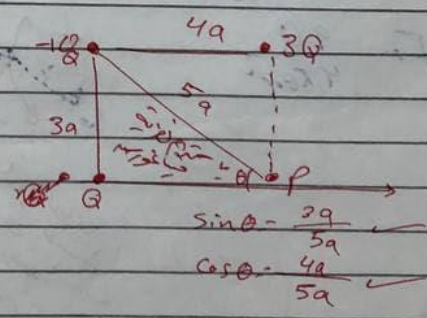 4a
Q 3Q
5a
3a
θ P
Q
sinθ = 3a/5a
cosθ = 4a/5a